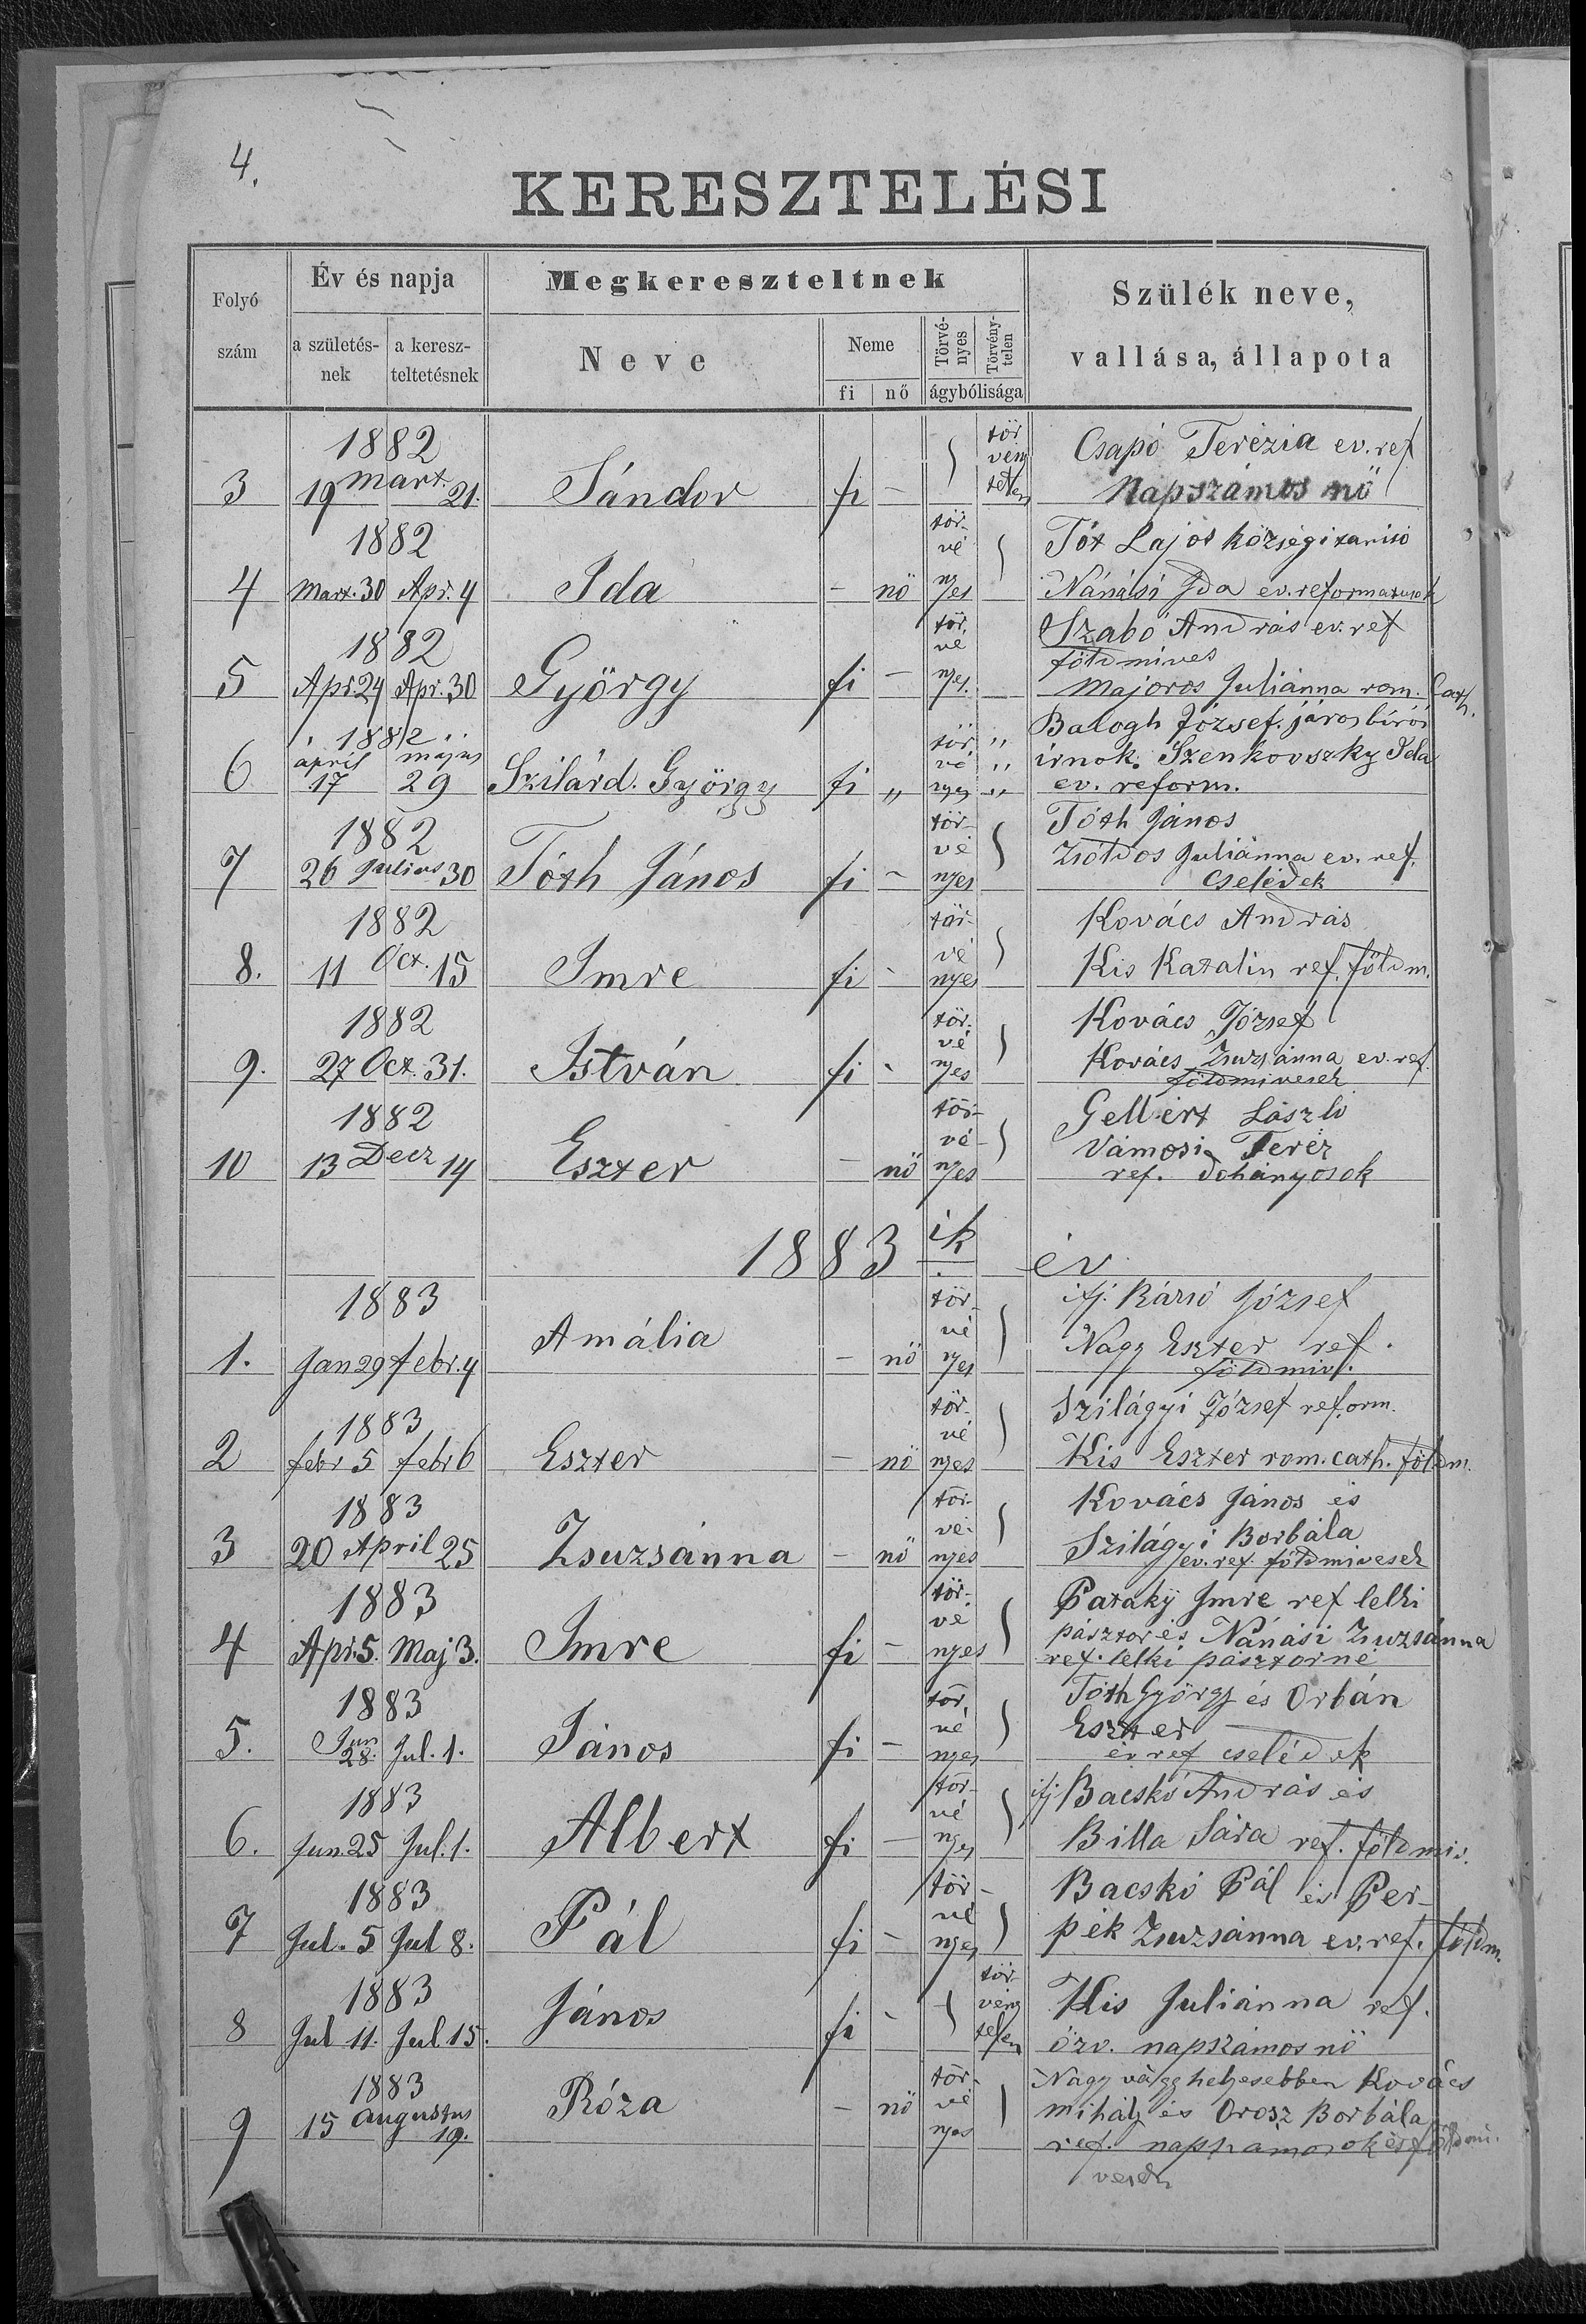 4.
KERESZTELÉSI
Folyó szám
Év és napja
a születésnek
a kereszteltetésnek
Megkereszteltnek
Neve
Neme
fi
nő
Törvényes
Törvénytelen
ágybólisága
Szülék neve,
vallása, állapota
1882
3 19 Mart. 21. Sándor fi – törvénytelen
Csapó Terézia ev. ref.
Napszámos nő
1882
4 Mart. 30 Apr. 4 Ida – nö törvényes
Tót Lajos községi tanitó
Nánási Ida ev. reformatusok
1882
5 Apr. 24 Apr. 30 György fi – törvényes.
Szabó András ev. ref
földmives
Majoros Juliánna rom. Cath.
1882
6 april 17 május 29 Szilárd. György fi „ törvényes „
Balogh József. járosbírói
irnok. Szenkovszky Ida
ev. reform.
1882
7 26 Julius 30 Tóth János fi – törvényes
Tóth János
Zsóldos Juliánna ev. ref.
Cselédek
1882
8. 11 Oct. 15 Imre fi – törvényes
Kovács András
Kis Katalin ref. földm.
1882
9. 27 Oct. 31. István fi – törvényes
Kovács József
Kovács Zsuzsánna ev. ref.
földmivesek
1882
10 13 Decz 14 Eszter – nö törvényes
Gellért László
Vámosi Teréz
ref. dohányosok
1883 ik év
1883
1. Jan 29 febr. 4 Amália – nö törvényes
ifj. József
Nagy Eszter ref.
földmiv.
1883
2 febr 5 febr 6 Eszter – nö törvényes
Szilágyi József reform.
Kis Eszter rom. cath. földm.
1883
3 20 April 25 Zsuzsánna – nö törvényes
Kovács János és
Szilágyi Borbála
ev. ref. földmivesek
1883
4 Apr. 5. Maj 3. Imre fi – törvényes
Pataky Imre ref lelki
pásztor és Nánási Zsuzsánna
ref. lelki pásztorné
1883
5. Jun 28. Jul. 1. János fi – törvényes
Tóth György és Orbán
Eszter
ev ref cselédek
1883
6. Jun. 25 Jul. 1. Albert fi – törvényes
ifj Bacskó András és
Billa Sára ref. földmiv.
1883
7 Jul. 5 Jul 8. Pál fi – törvényes
Bacskó Pál és Per-
pék Zsuzsánna ev. ref. földm.
1883
8 Jul 11. Jul 15. János fi – törvénytelen
Kis Juliánna ref.
özv. napszámosnö
1883
9 15 Augustus 19. Róza – nö törvényes
Nagy vagy helyesebben Kovács
Mihály és Orosz Borbála
ref. napszámosok és földmi-
vesek